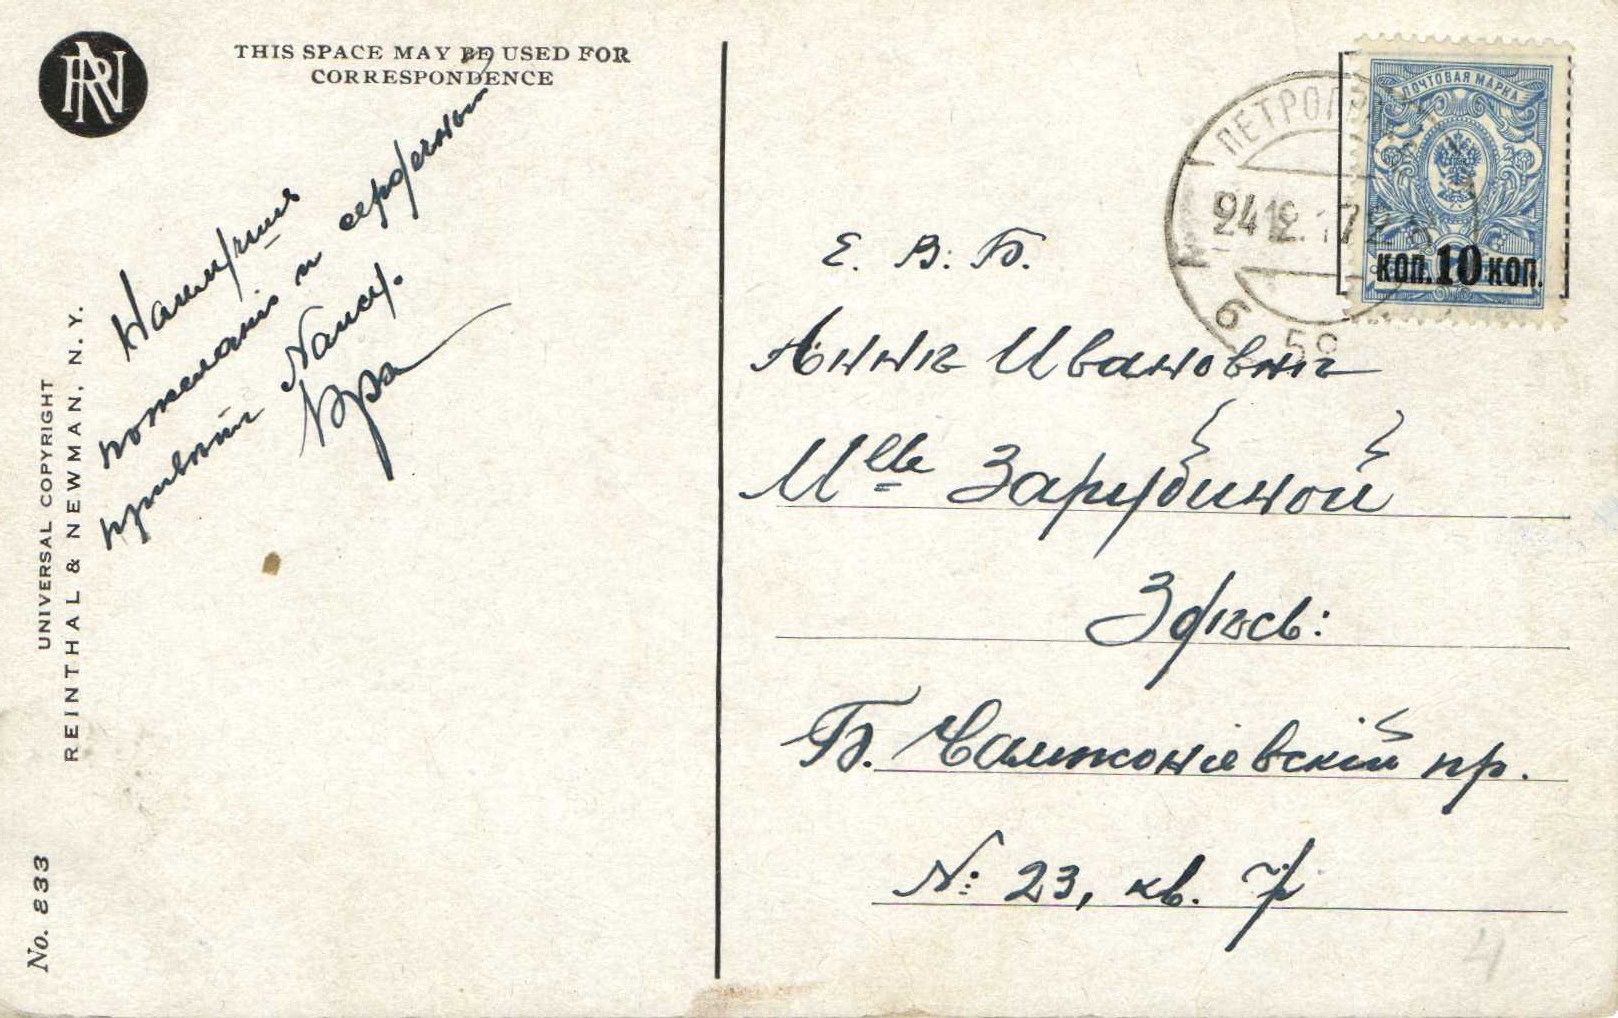 RN
THIS SPACE MAY BE USED FOR
CORRESPONDENCE
Наилучшія
пожеланія и сердечный
привѣтъ
UNIVERSAL COPYRIGHT
REINTHAL & NEWMAN, N. Y.
No. 833
ПОЧТОВАЯ МАРКА
КОП. 10 КОП.
ПЕТРОГРАД
24 12. 17
6 59
Е. В. Б.
Аннѣ Ивановнѣ
Mlle Зарубиной
Здѣсь:
Б. Сампсоніевскій пр.
№: 23, кв. 7
4